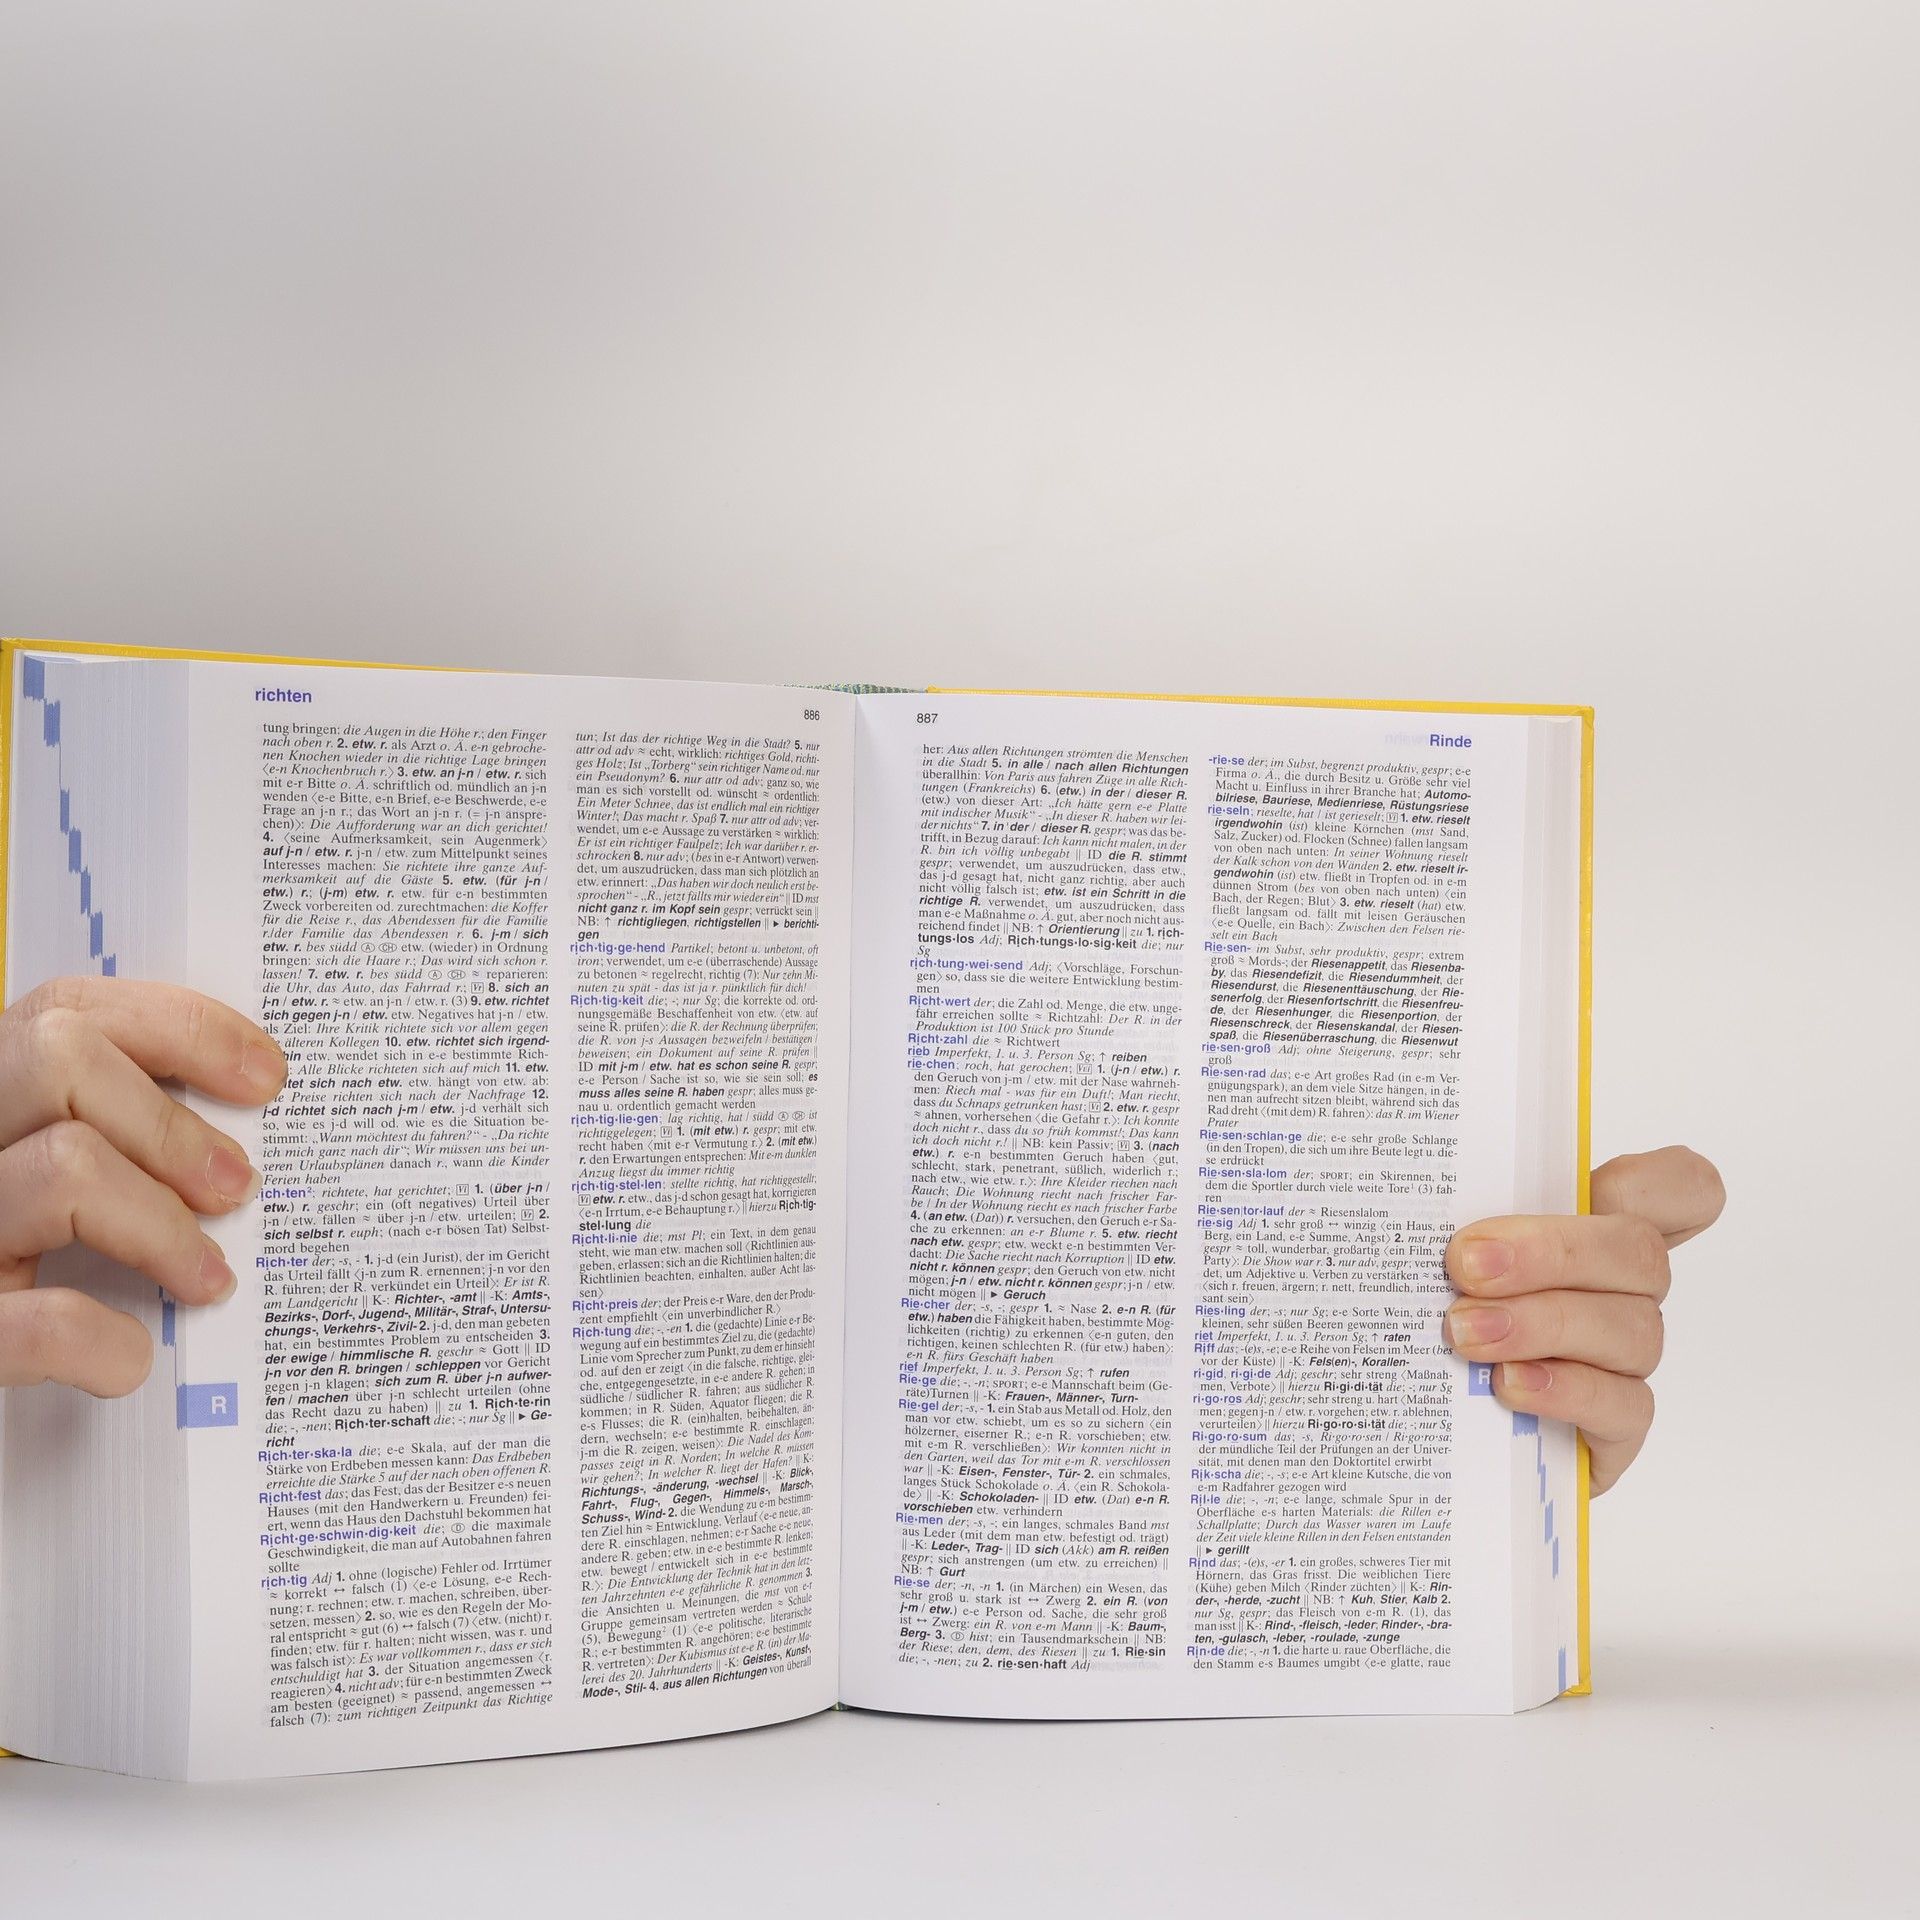 richten
886
tung bringen: die Augen in die Höhe r.; den Finger
nach oben r. 2. etw. r. als Arzt o. Ä. e-n gebroche-
nen Knochen wieder in die richtige Lage bringen
⟨e-n Knochenbruch r.⟩ 3. etw. an j-n / etw. r. sich
mit e-r Bitte o. Ä. schriftlich od. mündlich an j-n
wenden ⟨e-e Bitte, e-n Brief, e-e Beschwerde, e-e
Frage an j-n r.; das Wort an j-n r. (= j-n anspre-
chen)⟩: Die Aufforderung war an dich gerichtet!
4. ⟨seine Aufmerksamkeit, sein Augenmerk⟩
auf j-n / etw. r. j-n / etw. zum Mittelpunkt seines
Interesses machen: Sie richtete ihre ganze Auf-
merksamkeit auf die Gäste 5. etw. (für j-n /
etw.) r.; (j-m) etw. r. etw. für e-n bestimmten
Zweck vorbereiten od. zurechtmachen: die Koffer
für die Reise r., das Abendessen für die Familie
r./der Familie das Abendessen r. 6. j-m / sich
etw. r. bes südd Ⓐ ⒸⒽ etw. (wieder) in Ordnung
bringen: sich die Haare r.; Das wird sich schon r.
lassen! 7. etw. r. bes südd Ⓐ ⒸⒽ ≈ reparieren:
die Uhr, das Auto, das Fahrrad r.; Vr 8. sich an
j-n / etw. r. ≈ etw. an j-n / etw. r. (3) 9. etw. richtet
sich gegen j-n / etw. etw. Negatives hat j-n / etw.
als Ziel: Ihre Kritik richtete sich vor allem gegen
älteren Kollegen 10. etw. richtet sich irgend-
hin etw. wendet sich in e-e bestimmte Rich-
Alle Blicke richteten sich auf mich 11. etw.
tet sich nach etw. etw. hängt von etw. ab:
Preise richten sich nach der Nachfrage 12.
j-d richtet sich nach j-m / etw. j-d verhält sich
so, wie es j-d will od. wie es die Situation be-
stimmt: „Wann möchtest du fahren?“ - „Da richte
ich mich ganz nach dir“; Wir müssen uns bei un-
seren Urlaubsplänen danach r., wann die Kinder
Ferien haben
rich·ten²; richtete, hat gerichtet; Vi 1. (über j-n /
etw.) r. geschr; ein (oft negatives) Urteil über
j-n / etw. fällen ≈ über j-n / etw. urteilen; Vr 2.
sich selbst r. euph; (nach e-r bösen Tat) Selbst-
mord begehen
Rich·ter der; -s, - 1. j-d (ein Jurist), der im Gericht
das Urteil fällt ⟨j-n zum R. ernennen; j-n vor den
R. führen; der R. verkündet ein Urteil⟩: Er ist R.
am Landgericht || K-: Richter-, -amt || -K: Amts-,
Bezirks-, Dorf-, Jugend-, Militär-, Straf-, Untersu-
chungs-, Verkehrs-, Zivil- 2. j-d, den man gebeten
hat, ein bestimmtes Problem zu entscheiden 3.
der ewige / himmlische R. geschr ≈ Gott || ID
j-n vor den R. bringen / schleppen vor Gericht
gegen j-n klagen; sich zum R. über j-n aufwer-
fen / machen über j-n schlecht urteilen (ohne
das Recht dazu zu haben) || zu 1. Rich·te·rin
die; -, -nen; Rich·ter·schaft die; -; nur Sg || ▶ Ge-
richt
Rich·ter·ska·la die; e-e Skala, auf der man die
Stärke von Erdbeben messen kann: Das Erdbeben
erreichte die Stärke 5 auf der nach oben offenen R.
Richt·fest das; das Fest, das der Besitzer e-s neuen
Hauses (mit den Handwerkern u. Freunden) fei-
ert, wenn das Haus den Dachstuhl bekommen hat
Richt·ge·schwin·dig·keit die; Ⓓ die maximale
Geschwindigkeit, die man auf Autobahnen fahren
sollte
rich·tig Adj 1. ohne (logische) Fehler od. Irrtümer
≈ korrekt ↔ falsch (1) ⟨e-e Lösung, e-e Rech-
nung; r. rechnen; etw. r. machen, schreiben, über-
setzen, messen⟩ 2. so, wie es den Regeln der Mo-
ral entspricht ≈ gut (6) ↔ falsch (7) ⟨etw. (nicht) r.
finden; etw. für r. halten; nicht wissen, was r. und
was falsch ist⟩: Es war vollkommen r., dass er sich
entschuldigt hat 3. der Situation angemessen ⟨r.
reagieren⟩ 4. nicht adv; für e-n bestimmten Zweck
am besten (geeignet) ≈ passend, angemessen ↔
falsch (7): zum richtigen Zeitpunkt das Richtige
R
tun; Ist das der richtige Weg in die Stadt? 5. nur
attr od adv ≈ echt, wirklich: richtiges Gold, richti-
ges Holz; Ist „Torberg“ sein richtiger Name od. nur
ein Pseudonym? 6. nur attr od adv; ganz so, wie
man es sich vorstellt od. wünscht ≈ ordentlich:
Ein Meter Schnee, das ist endlich mal ein richtiger
Winter!; Das macht r. Spaß 7. nur attr od adv; ver-
wendet, um e-e Aussage zu verstärken ≈ wirklich:
Er ist ein richtiger Faulpelz; Ich war darüber r. er-
schrocken 8. nur adv; (bes in e-r Antwort) verwen-
det, um auszudrücken, dass man sich plötzlich an
etw. erinnert: „Das haben wir doch neulich erst be-
sprochen“ - „R., jetzt fällts mir wieder ein“ || ID mst
nicht ganz r. im Kopf sein gespr; verrückt sein ||
NB: ↑ richtigliegen, richtigstellen || ▶ berichti-
gen
rich·tig·ge·hend Partikel; betont u. unbetont, oft
iron; verwendet, um e-e (überraschende) Aussage
zu betonen ≈ regelrecht, richtig (7): Nur zehn Mi-
nuten zu spät - das ist ja r. pünktlich für dich!
Rich·tig·keit die; -; nur Sg; die korrekte od. ord-
nungsgemäße Beschaffenheit von etw. ⟨etw. auf
seine R. prüfen⟩: die R. der Rechnung überprüfen;
die R. von j-s Aussagen bezweifeln / bestätigen /
beweisen; ein Dokument auf seine R. prüfen ||
ID mit j-m / etw. hat es schon seine R. gespr;
e-e Person / Sache ist so, wie sie sein soll; es
muss alles seine R. haben gespr; alles muss ge-
nau u. ordentlich gemacht werden
rich·tig·lie·gen; lag richtig, hat / südd Ⓐ ⒸⒽ ist
richtiggelegen; Vi 1. (mit etw.) r. gespr; mit etw.
recht haben ⟨mit e-r Vermutung r.⟩ 2. (mit etw.)
r. den Erwartungen entsprechen: Mit e-m dunklen
Anzug liegst du immer richtig
rich·tig·stel·len; stellte richtig, hat richtiggestellt;
Vt etw. r. etw., das j-d schon gesagt hat, korrigieren
⟨e-n Irrtum, e-e Behauptung r.⟩ || hierzu Rich·tig-
stel·lung die
Richt·li·nie die; mst Pl; ein Text, in dem genau
steht, wie man etw. machen soll ⟨Richtlinien aus-
geben, erlassen; sich an die Richtlinien halten; die
Richtlinien beachten, einhalten, außer Acht las-
sen⟩
Richt·preis der; der Preis e-r Ware, den der Produ-
zent empfiehlt ⟨ein unverbindlicher R.⟩
Rich·tung die; -, -en 1. die (gedachte) Linie e-r Be-
wegung auf ein bestimmtes Ziel zu, die (gedachte)
Linie vom Sprecher zum Punkt, zu dem er hinsieht
od. auf den er zeigt ⟨in die falsche, richtige, glei-
che, entgegengesetzte, in e-e andere R. gehen; in
südliche / südlicher R. fahren; aus südlicher R.
kommen; in R. Süden, Äquator fliegen; die R.
e-s Flusses; die R. (ein)halten, beibehalten, än-
dern, wechseln; e-e bestimmte R. einschlagen;
j-m die R. zeigen, weisen⟩: Die Nadel des Kom-
passes zeigt in R. Norden; In welche R. müssen
wir gehen?; In welcher R. liegt der Hafen? || K-:
Richtungs-, -änderung, -wechsel || -K: Blick-,
Fahrt-, Flug-, Gegen-, Himmels-, Marsch-,
Schuss-, Wind- 2. die Wendung zu e-m bestimm-
ten Ziel hin ≈ Entwicklung, Verlauf ⟨e-e neue, an-
dere R. einschlagen, nehmen; e-r Sache e-e neue,
andere R. geben; etw. in e-e bestimmte R. lenken;
etw. bewegt / entwickelt sich in e-e bestimmte
R.⟩: Die Entwicklung der Technik hat in den letz-
ten Jahrzehnten e-e gefährliche R. genommen 3.
die Ansichten u. Meinungen, die mst von e-r
Gruppe gemeinsam vertreten werden ≈ Schule
(5), Bewegung² (1) ⟨e-e politische, literarische
R.; e-r bestimmten R. angehören; e-e bestimmte
R. vertreten⟩: Der Kubismus ist e-e R. (in) der Ma-
lerei des 20. Jahrhunderts || -K: Geistes-, Kunst-,
Mode-, Stil- 4. aus allen Richtungen von überall
887
Rinde
her: Aus allen Richtungen strömten die Menschen
in die Stadt 5. in alle / nach allen Richtungen
überallhin: Von Paris aus fahren Züge in alle Rich-
tungen (Frankreichs) 6. (etw.) in der / dieser R.
(etw.) von dieser Art: „Ich hätte gern e-e Platte
mit indischer Musik“ - „In dieser R. haben wir lei-
der nichts“ 7. in der / dieser R. gespr; was das be-
trifft, in Bezug darauf: Ich kann nicht malen, in der
R. bin ich völlig unbegabt || ID die R. stimmt
gespr; verwendet, um auszudrücken, dass etw.,
das j-d gesagt hat, nicht ganz richtig, aber auch
nicht völlig falsch ist; etw. ist ein Schritt in die
richtige R. verwendet, um auszudrücken, dass
man e-e Maßnahme o. Ä. gut, aber noch nicht aus-
reichend findet || NB: ↑ Orientierung || zu 1. rich-
tungs·los Adj; Rich·tungs·lo·sig·keit die; nur
Sg
rich·tung·wei·send Adj; ⟨Vorschläge, Forschun-
gen⟩ so, dass sie die weitere Entwicklung bestim-
men
Richt·wert der; die Zahl od. Menge, die etw. unge-
fähr erreichen sollte ≈ Richtzahl: Der R. in der
Produktion ist 100 Stück pro Stunde
Richt·zahl die ≈ Richtwert
rieb Imperfekt, 1. u. 3. Person Sg; ↑ reiben
rie·chen; roch, hat gerochen; Vt/i 1. (j-n / etw.) r.
den Geruch von j-m / etw. mit der Nase wahrneh-
men: Riech mal - was für ein Duft!; Man riecht,
dass du Schnaps getrunken hast; Vt 2. etw. r. gespr
≈ ahnen, vorhersehen ⟨die Gefahr r.⟩: Ich konnte
doch nicht r., dass du so früh kommst!; Das kann
ich doch nicht r.! || NB: kein Passiv; Vi 3. (nach
etw.) r. e-n bestimmten Geruch haben ⟨gut,
schlecht, stark, penetrant, süßlich, widerlich r.;
nach etw., wie etw. r.⟩: Ihre Kleider riechen nach
Rauch; Die Wohnung riecht nach frischer Far-
be / In der Wohnung riecht es nach frischer Farbe
4. (an etw. (Dat)) r. versuchen, den Geruch e-r Sa-
che zu erkennen: an e-r Blume r. 5. etw. riecht
nach etw. gespr; etw. weckt e-n bestimmten Ver-
dacht: Die Sache riecht nach Korruption || ID etw.
nicht r. können gespr; den Geruch von etw. nicht
mögen; j-n / etw. nicht r. können gespr; j-n / etw.
nicht mögen || ▶ Geruch
Rie·cher der; -s, -; gespr 1. ≈ Nase 2. e-n R. (für
etw.) haben die Fähigkeit haben, bestimmte Mög-
lichkeiten (richtig) zu erkennen ⟨e-n guten, den
richtigen, keinen schlechten R. (für etw.) haben⟩:
e-n R. fürs Geschäft haben
rief Imperfekt, 1. u. 3. Person Sg; ↑ rufen
Rie·ge die; -, -n; SPORT; e-e Mannschaft beim (Ge-
räte)Turnen || -K: Frauen-, Männer-, Turn-
Rie·gel der; -s, - 1. ein Stab aus Metall od. Holz, den
man vor etw. schiebt, um es so zu sichern ⟨ein
hölzerner, eiserner R.; e-n R. vorschieben; etw.
mit e-m R. verschließen⟩: Wir konnten nicht in
den Garten, weil das Tor mit e-m R. verschlossen
war || -K: Eisen-, Fenster-, Tür- 2. ein schmales,
langes Stück Schokolade o. Ä. ⟨ein R. Schokola-
de⟩ || -K: Schokoladen- || ID etw. (Dat) e-n R.
vorschieben etw. verhindern
Rie·men der; -s, -; ein langes, schmales Band mst
aus Leder (mit dem man etw. befestigt od. trägt)
|| -K: Leder-, Trag- || ID sich (Akk) am R. reißen
gespr; sich anstrengen (um etw. zu erreichen) ||
NB: ↑ Gurt
Rie·se der; -n, -n 1. (in Märchen) ein Wesen, das
sehr groß u. stark ist ↔ Zwerg 2. ein R. (von
j-m / etw.) e-e Person od. Sache, die sehr groß
ist ↔ Zwerg: ein R. von e-m Mann || -K: Baum-,
Berg- 3. Ⓓ hist; ein Tausendmarkschein || NB:
der Riese; den, dem, des Riesen || zu 1. Rie·sin
die; -, -nen; zu 2. rie·sen·haft Adj
-rie·se der; im Subst, begrenzt produktiv, gespr; e-e
Firma o. Ä., die durch Besitz u. Größe sehr viel
Macht u. Einfluss in ihrer Branche hat; Automo-
bilriese, Bauriese, Medienriese, Rüstungsriese
rie·seln; rieselte, hat / ist gerieselt; Vi 1. etw. rieselt
irgendwohin (ist) kleine Körnchen (mst Sand,
Salz, Zucker) od. Flocken (Schnee) fallen langsam
von oben nach unten: In seiner Wohnung rieselt
der Kalk schon von den Wänden 2. etw. rieselt ir-
gendwohin (ist) etw. fließt in Tropfen od. in e-m
dünnen Strom (bes von oben nach unten) ⟨ein
Bach, der Regen; Blut⟩ 3. etw. rieselt (hat) etw.
fließt langsam od. fällt mit leisen Geräuschen
⟨e-e Quelle, ein Bach⟩: Zwischen den Felsen rie-
selt ein Bach
Rie·sen- im Subst, sehr produktiv, gespr; extrem
groß ≈ Mords-; der Riesenappetit, das Riesenba-
by, das Riesendefizit, die Riesendummheit, der
Riesendurst, die Riesenenttäuschung, der Rie-
senerfolg, der Riesenfortschritt, die Riesenfreu-
de, der Riesenhunger, die Riesenportion, der
Riesenschreck, der Riesenskandal, der Riesen-
spaß, die Riesenüberraschung, die Riesenwut
rie·sen·groß Adj; ohne Steigerung, gespr; sehr
groß
Rie·sen·rad das; e-e Art großes Rad (in e-m Ver-
gnügungspark), an dem viele Sitze hängen, in de-
nen man aufrecht sitzen bleibt, während sich das
Rad dreht ⟨(mit dem) R. fahren⟩: das R. im Wiener
Prater
Rie·sen·schlan·ge die; e-e sehr große Schlange
(in den Tropen), die sich um ihre Beute legt u. die-
se erdrückt
Rie·sen·sla·lom der; SPORT; ein Skirennen, bei
dem die Sportler durch viele weite Tore¹ (3) fah-
ren
Rie·sen|tor·lauf der ≈ Riesenslalom
rie·sig Adj 1. sehr groß ↔ winzig ⟨ein Haus, ein
Berg, ein Land, e-e Summe, Angst⟩ 2. mst präd
gespr ≈ toll, wunderbar, großartig ⟨ein Film, e-
Party⟩: Die Show war r. 3. nur adv, gespr; verwe
det, um Adjektive u. Verben zu verstärken ≈ seh
⟨sich r. freuen, ärgern; r. nett, freundlich, interes-
sant sein⟩
Ries·ling der; -s; nur Sg; e-e Sorte Wein, die au
kleinen, sehr süßen Beeren gewonnen wird
riet Imperfekt, 1. u. 3. Person Sg; ↑ raten
Riff das; -(e)s, -e; e-e Reihe von Felsen im Meer (bes
vor der Küste) || -K: Fels(en)-, Korallen-
ri·gid, ri·gi·de Adj, geschr; sehr streng ⟨Maßnah-
men, Verbote⟩ || hierzu Ri·gi·di·tät die; -; nur Sg
ri·go·ros Adj; geschr; sehr streng u. hart ⟨Maßnah-
men; gegen j-n / etw. r. vorgehen; etw. r. ablehnen,
verurteilen⟩ || hierzu Ri·go·ro·si·tät die; -; nur Sg
Ri·go·ro·sum das; -s, Ri·go·ro·sen / Ri·go·ro·sa;
der mündliche Teil der Prüfungen an der Univer-
sität, mit denen man den Doktortitel erwirbt
Rik·scha die; -, -s; e-e Art kleine Kutsche, die von
e-m Radfahrer gezogen wird
Ril·le die; -, -n; e-e lange, schmale Spur in der
Oberfläche e-s harten Materials: die Rillen e-r
Schallplatte; Durch das Wasser waren im Laufe
der Zeit viele kleine Rillen in den Felsen entstanden
|| ▶ gerillt
Rind das; -(e)s, -er 1. ein großes, schweres Tier mit
Hörnern, das Gras frisst. Die weiblichen Tiere
(Kühe) geben Milch ⟨Rinder züchten⟩ || K-: Rin-
der-, -herde, -zucht || NB: ↑ Kuh, Stier, Kalb 2.
nur Sg, gespr; das Fleisch von e-m R. (1), das
man isst || K-: Rind-, -fleisch, -leder; Rinder-, -bra-
ten, -gulasch, -leber, -roulade, -zunge
Rin·de die; -, -n 1. die harte u. raue Oberfläche, die
den Stamm e-s Baumes umgibt ⟨e-e glatte, raue
R